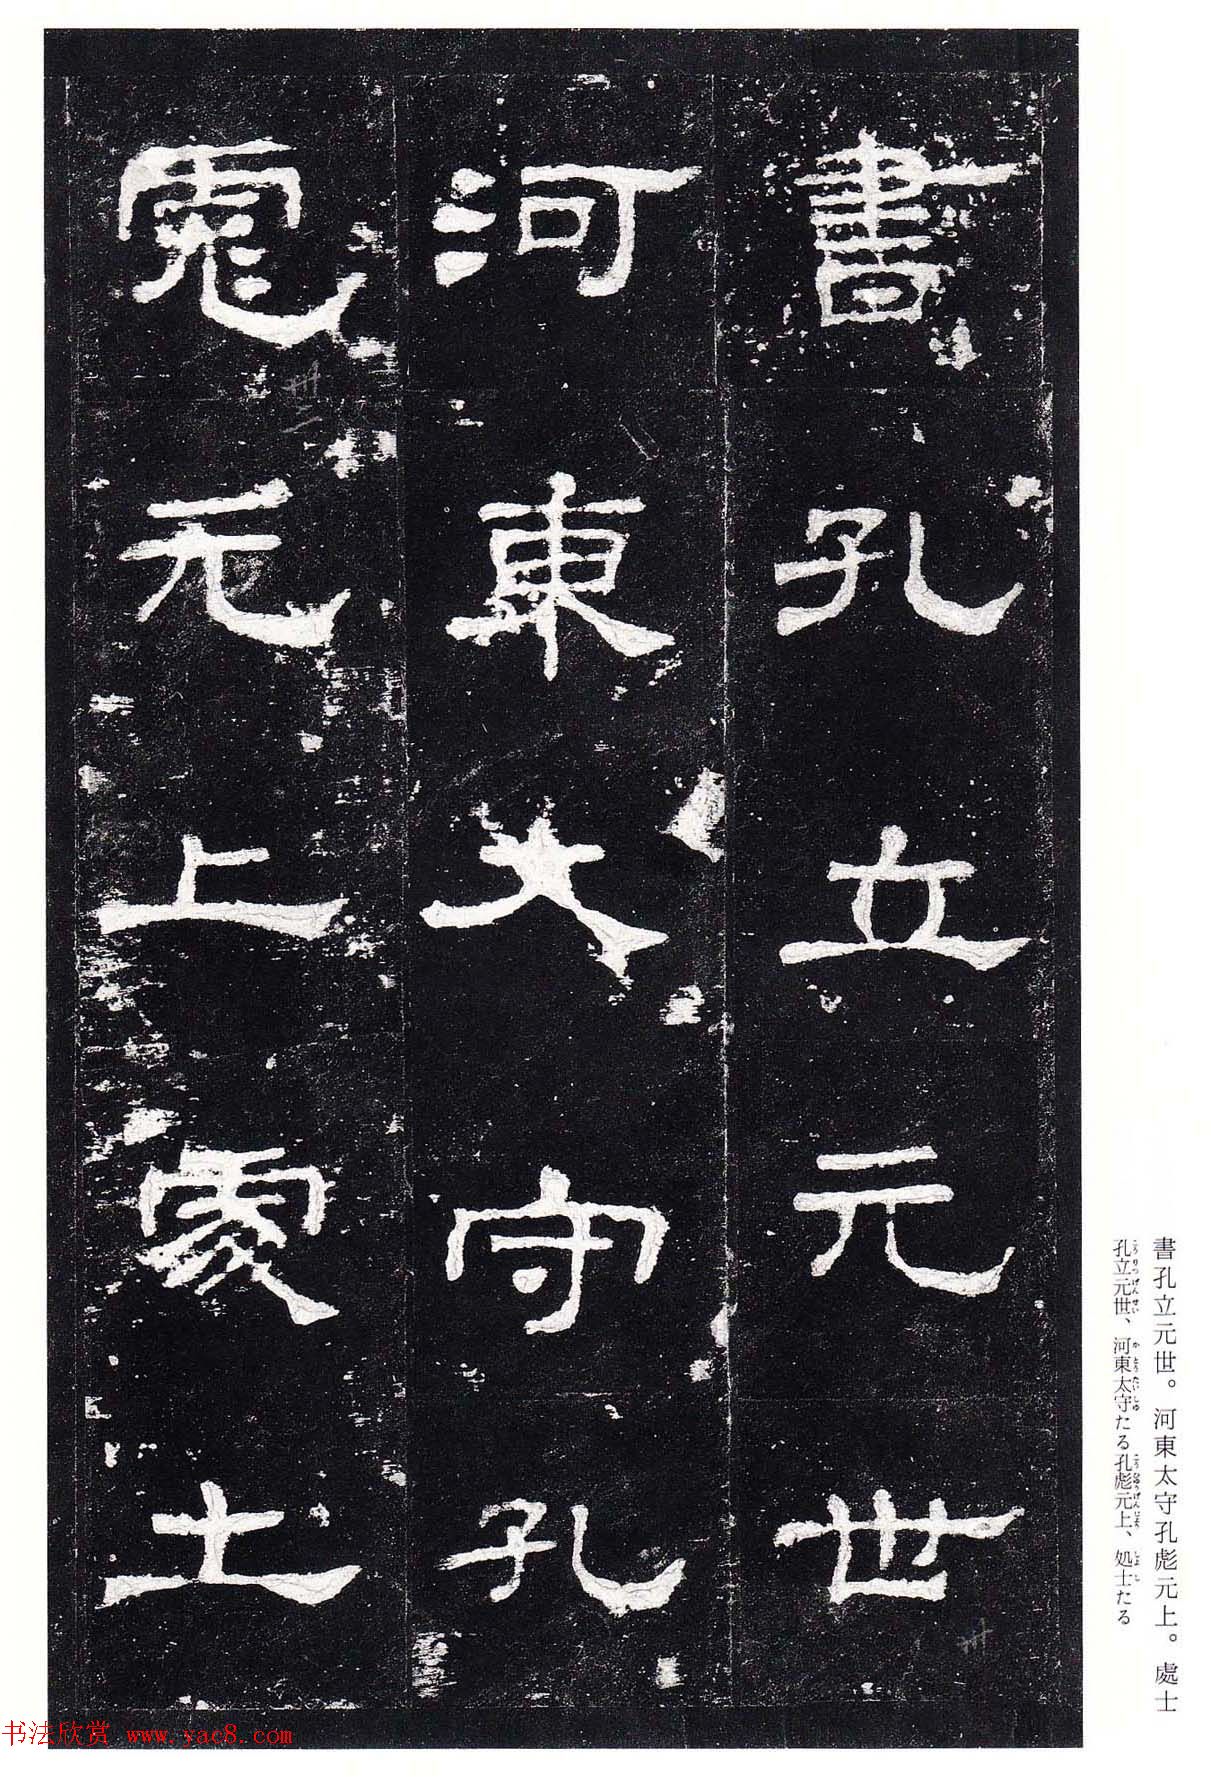 書孔立元世
河東太守孔
彪元上處士
書孔立元世。河東太守孔彪元上。處士
孔立元世、河東太守たる孔彪元上、処士たる
书法欣赏 www.yac8.com